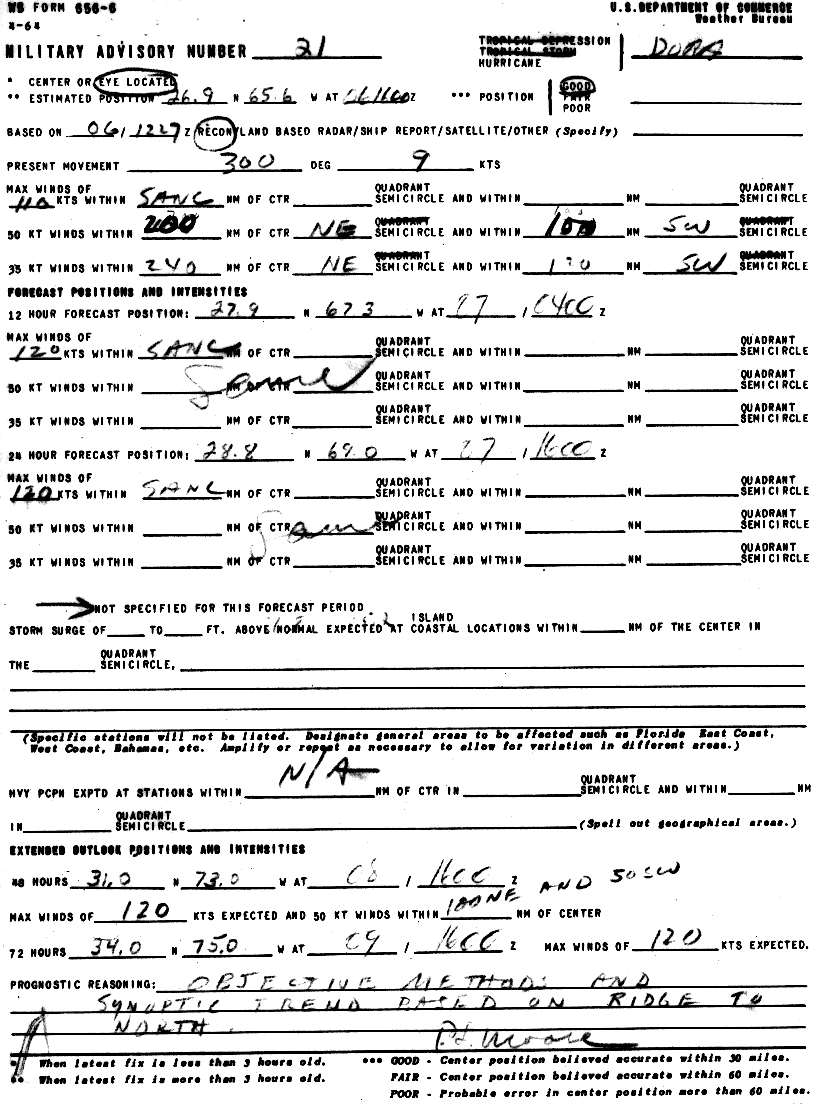 WB FORM 656-6 U.S. DEPARTMENT OF COMMERCE
4-64 Weather Bureau
TROPICAL DEPRESSION
MILITARY ADVISORY NUMBER 21 TROPICAL STORM DORA
HURRICANE
* CENTER OR EYE LOCATED GOOD
** ESTIMATED POSITION 26.9 N 65.6 W AT 06/1600Z *** POSITION FAIR
POOR
BASED ON 06/1227Z RECON/LAND BASED RADAR/SHIP REPORT/SATELLITE/OTHER (Specify)
PRESENT MOVEMENT 300 DEG 9 KTS
MAX WINDS OF QUADRANT QUADRANT
110 KTS WITHIN SANC NM OF CTR SEMICIRCLE AND WITHIN NM SEMICIRCLE
QUADRANT QUADRANT
50 KT WINDS WITHIN 200 NM OF CTR NE SEMICIRCLE AND WITHIN 100 NM SW SEMICIRCLE
QUADRANT QUADRANT
35 KT WINDS WITHIN 240 NM OF CTR NE SEMICIRCLE AND WITHIN NM SW SEMICIRCLE
FORECAST POSITIONS AND INTENSITIES
12 HOUR FORECAST POSITION: 27.9 N 67.3 W AT 07 / 0400 Z
MAX WINDS OF QUADRANT QUADRANT
120 KTS WITHIN SANC NM OF CTR SEMICIRCLE AND WITHIN NM SEMICIRCLE
QUADRANT QUADRANT
50 KT WINDS WITHIN Same NM OF CTR SEMICIRCLE AND WITHIN NM SEMICIRCLE
QUADRANT QUADRANT
35 KT WINDS WITHIN NM OF CTR SEMICIRCLE AND WITHIN NM SEMICIRCLE
24 HOUR FORECAST POSITION: 28.8 N 69.0 W AT 07 / 1600 Z
MAX WINDS OF QUADRANT QUADRANT
120 KTS WITHIN SANC NM OF CTR SEMICIRCLE AND WITHIN NM SEMICIRCLE
QUADRANT QUADRANT
50 KT WINDS WITHIN NM OF CTR Same SEMICIRCLE AND WITHIN NM SEMICIRCLE
QUADRANT QUADRANT
35 KT WINDS WITHIN NM OF CTR SEMICIRCLE AND WITHIN NM SEMICIRCLE
NOT SPECIFIED FOR THIS FORECAST PERIOD
ISLAND
STORM SURGE OF TO FT. ABOVE NORMAL EXPECTED AT COASTAL LOCATIONS WITHIN NM OF THE CENTER IN
QUADRANT
THE SEMICIRCLE,
(Specific stations will not be listed. Designate general areas to be affected such as Florida East Coast,
West Coast, Bahamas, etc. Amplify or repeat as necessary to allow for variation in different areas.)
N/A QUADRANT
HVY PCPN EXPTD AT STATIONS WITHIN NM OF CTR IN SEMICIRCLE AND WITHIN NM
QUADRANT
IN SEMICIRCLE (Spell out geographical areas.)
EXTENDED OUTLOOK POSITIONS AND INTENSITIES
48 HOURS 31.0 N 73.0 W AT 08 / 1600 Z AND 50 SW
MAX WINDS OF 120 KTS EXPECTED AND 50 KT WINDS WITHIN 100NE NM OF CENTER
72 HOURS 34.0 N 75.0 W AT 09 / 1600 Z MAX WINDS OF 120 KTS EXPECTED.
PROGNOSTIC REASONING: OBJECTIVE METHODS AND
SYNOPTIC TREND BASED ON RIDGE TO
NORTH. P.L. Moore
* When latest fix is less than 3 hours old. *** GOOD - Center position believed accurate within 30 miles.
** When latest fix is more than 3 hours old. FAIR - Center position believed accurate within 60 miles.
POOR - Probable error in center position more than 60 miles.